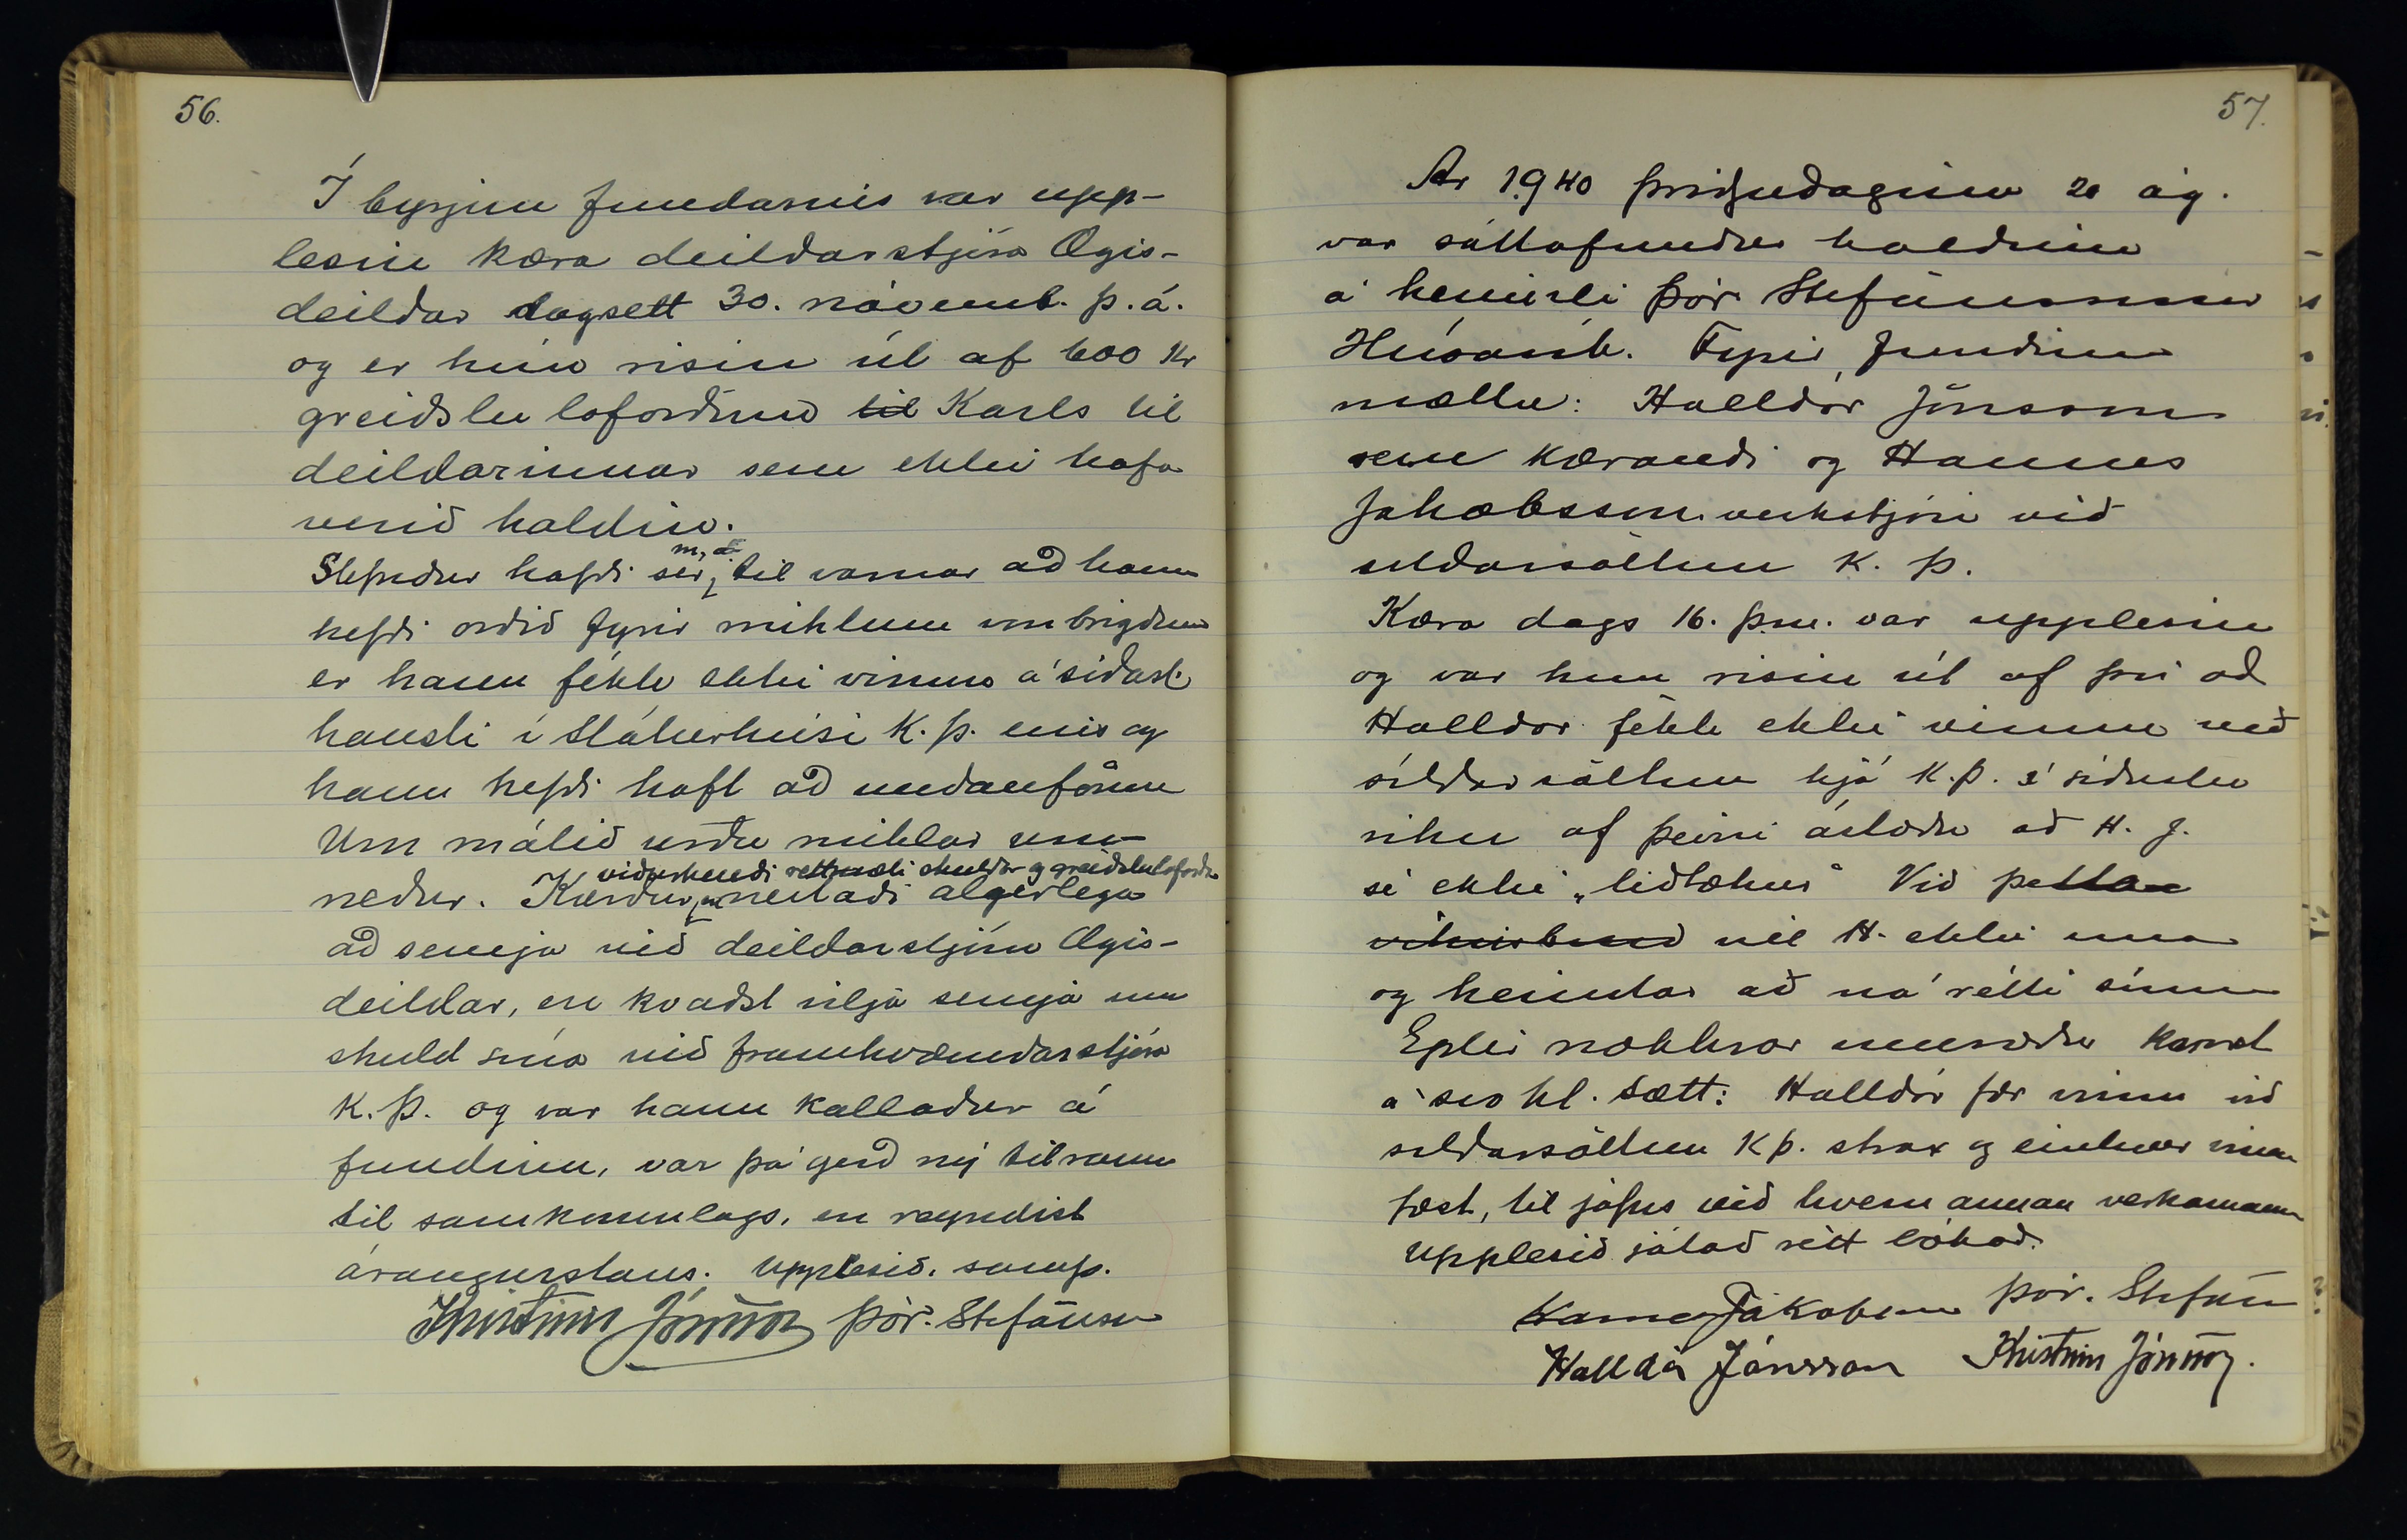 56.
Í byrjun fundarins var upp-
lesin kæra deildarstjóra Ægis-
deildar dagsett 30. nóvemb. þ.á.
og er hún risin út af 600 kr
greiðslu loforðum til Karls til
deildarinnar sem ekki hafa
verið haldin.
m, a
Stefndur hafði sér, til varnar að hann
hefði orðið fyrir miklum vonbrigðum
er hann fékk ekki vinnu á síðast.
hausti í sláturhúsi K.Þ. eins og
hann hefði haft að undanförnu
Um málið urðu miklar um-
viðurkendi réttmæti skuldar og greiðsluloforða
ræður. Kærður, en neitaði algerlega
að semja við deildarstjóra Ægis-
deildar, en kvaðst vilja semja um
skuld sína við framkvæmdarstjóra
K.Þ. og var hann kallaður á
fundinn, var þá gerð ný tilraun
til samkomulags, en reyndist
árangurslaus. Upplesið. samþ.
Kristinn Jónsson Þór. Stefánsson
57.
Ár 1940 þriðjudaginn 20 ág.
var sáttafundur haldinn
á heimili Þór Stefánssonar
Húsavík. Fyrir fundinn
mættu: Halldór Jónsson
sem kærandi og Hannes
Jakobsson verkstjóri við
síldarsöltun K. Þ.
Kæra dags 16. þ.m. var upplesin
og var hun risin út af því að
Halldór fékk ekki vinnu við
síldarsöltun hjá K.Þ. í síðustu
viku af þeirri ástæðu að H. J.
sé ekki „liðtækur" Við þetta
vill H. ekki una
og heimtar að ná rétti sínum
Eptir nokkrar umræður komst
á svo hl. sætt: Halldór fær vinnu við
síldarsöltun KÞ. strax og einhver vinna
fæst, til jafns við hvern annan verkamann
Upplesið játað rétt bókað.
Hannes Jakobsson Þór. Stefánsson
Halldór Jónsson Kristinn Jónsson.